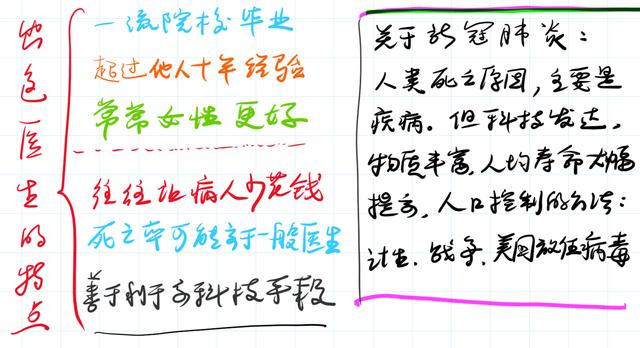 出色医生的特点
一流院校毕业
超过他人十年经验
常常女性更好
往往让病人少花钱
死亡率可能高于一般医生
善于利于高科技手段
关于新冠肺炎：
人类死亡原因，主要是
疾病。但科技发达，
物质丰富，人均寿命大幅
提高，人口控制的方法：
计生、战争、美国放任病毒